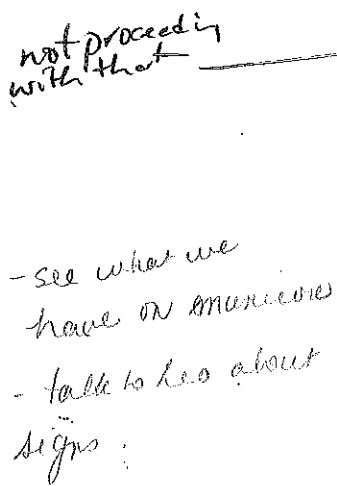 not proceeding
with that
- see what we
have on
- talk to Leo about
signs.